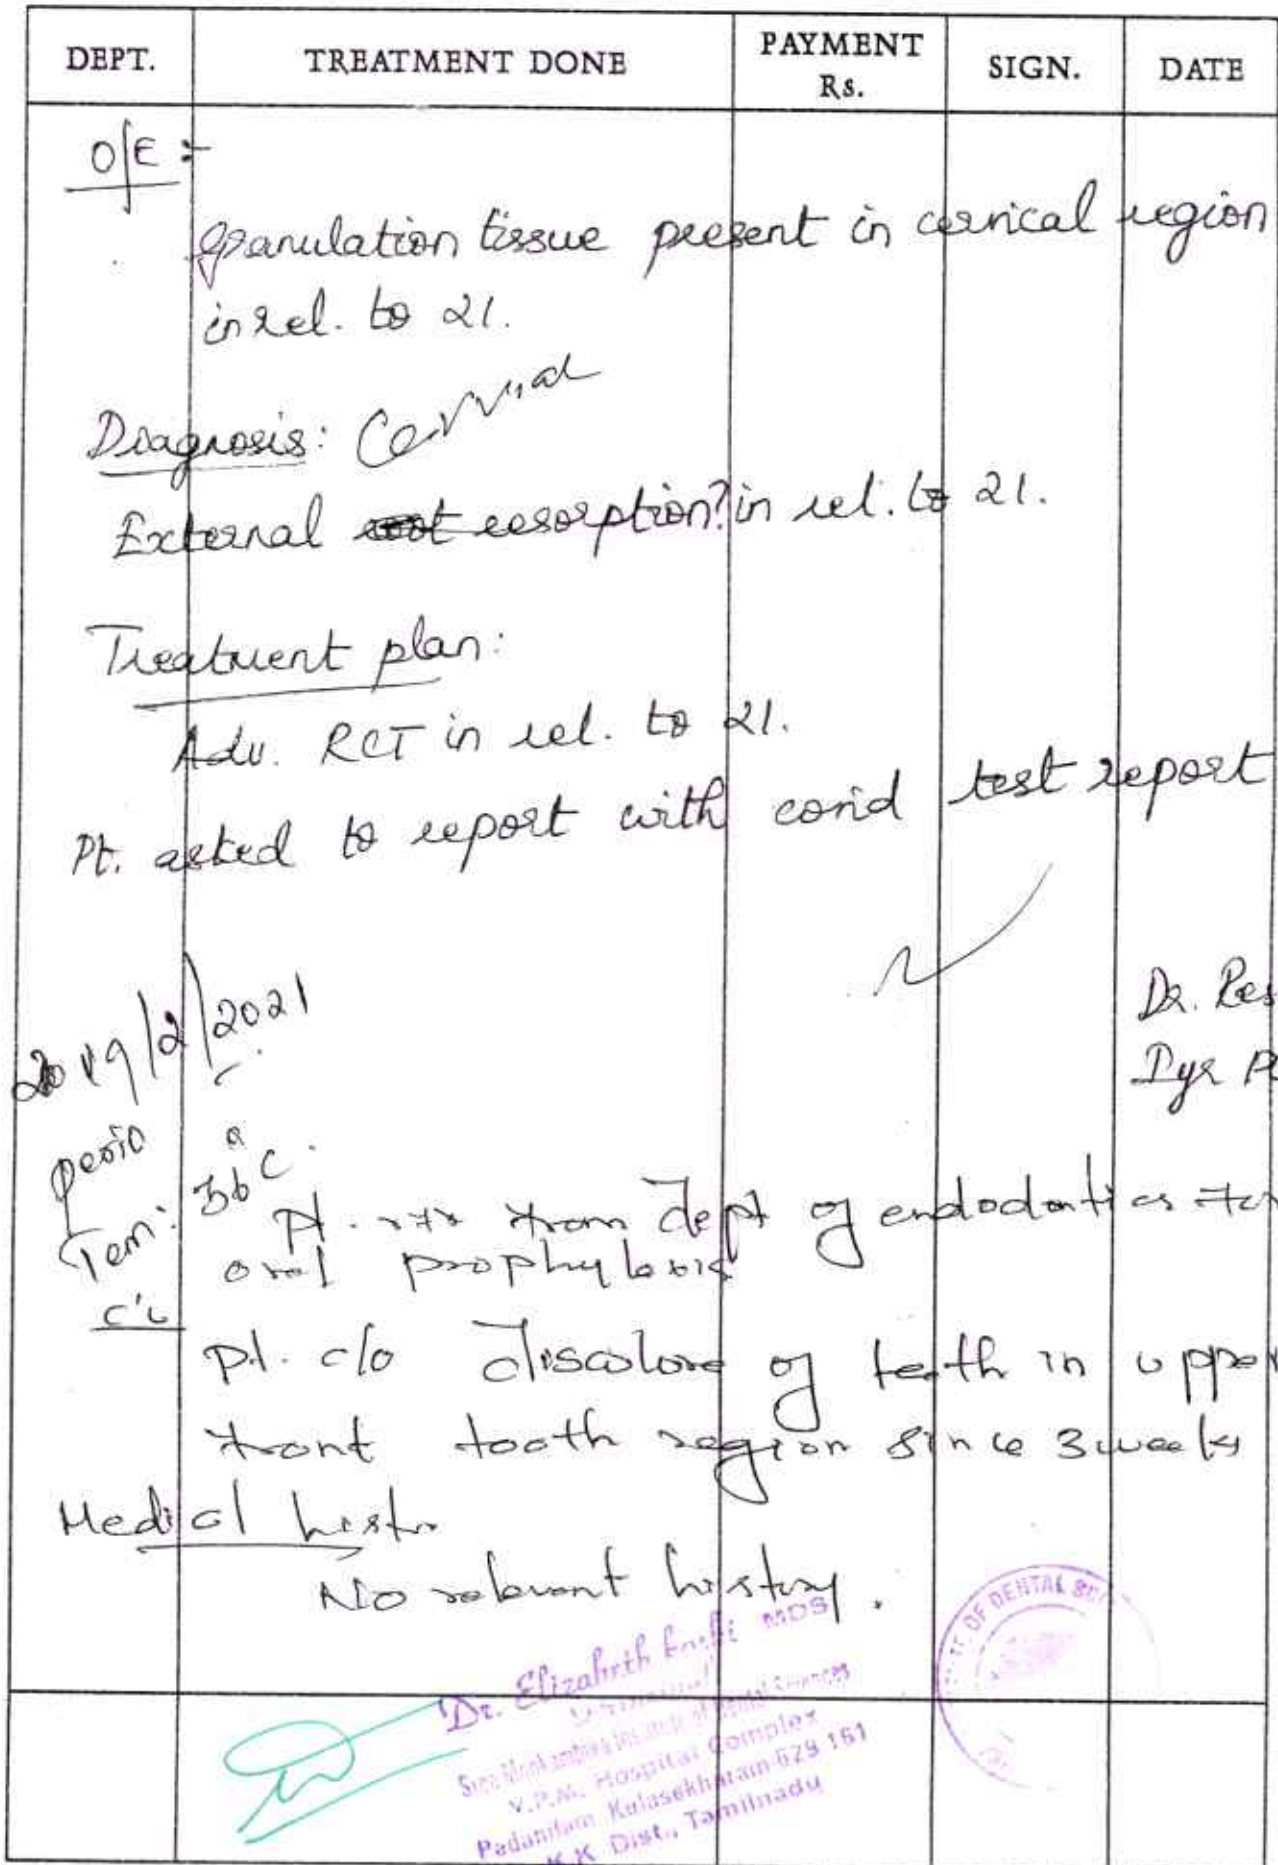 DEPT. TREATMENT DONE PAYMENT Rs. SIGN. DATE
O/E :-
Granulation tissue present in cervical region
in rel. to 21.
Diagnosis: Cervical
External root resorption? in rel. to 21.
Treatment plan:
Adv. RCT in rel. to 21.
Pt. asked to report with covid test report
Dr. Res
19/2/2021
perio
Tem: 36°C.
pt. from dept of endodontics for
oral prophylaxis
pt. c/o discolore of teeth in upper
front tooth region since 3 weeks
Medical histr
No relevant history.
Dr. Elizabeth Koshi MDS
Principal
Sree Mookambika Institute of Dental Sciences
V.P.M. Hospital Complex
Padanilam Kulasekharam-629 161
K.K Dist., Tamilnadu
OF DENTAL